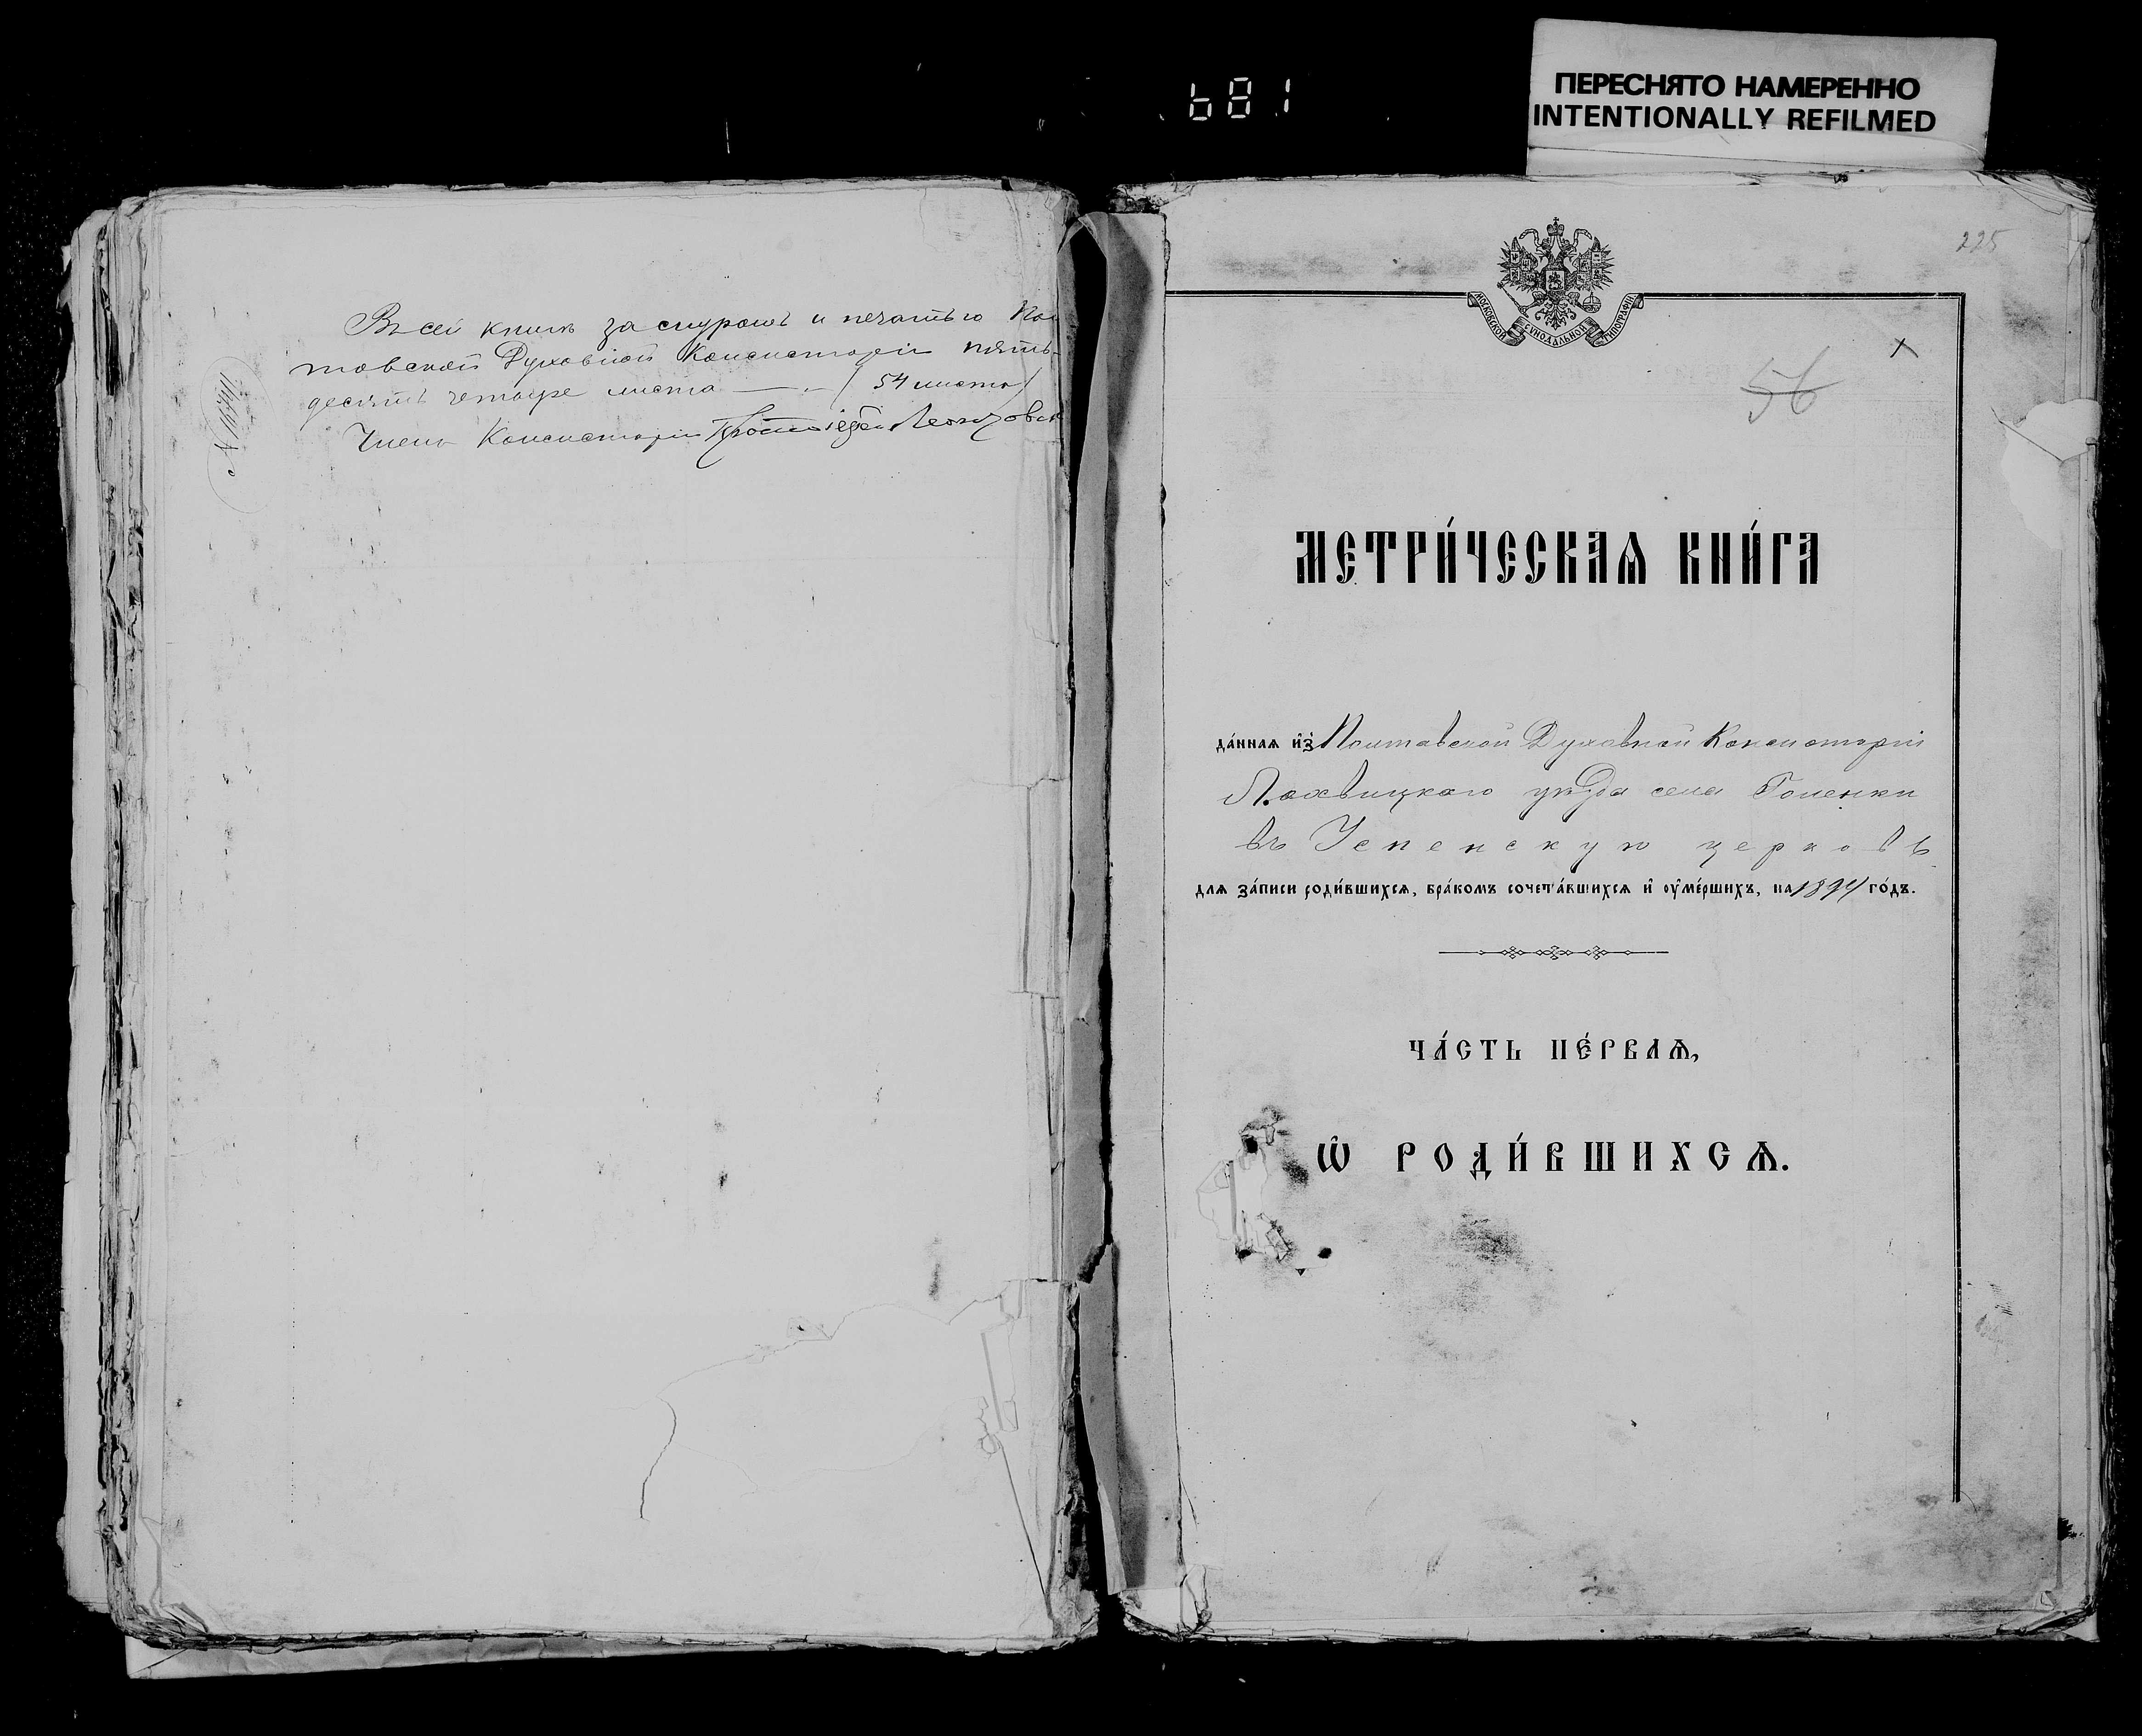 681
ПЕРЕСНЯТО НАМЕРЕННО
INTENTIONALLY REFILMED
Въ сей книгѣ за шнуромъ и печатью Пол
тавской Духовной Консисторіи пять-
десятъ четыре листа — . – (54 листа)
Членъ Консисторіи Протоіерей
225
МОСКОВСКОЙ СУНОДАЛЬНОЙ ТИПОГРАФІИ
56
МЕТРИ́ЧЕСКАѦ КНИ́ГА
да́ннаѧ и҆з̾ Полтавской Духовной Консисторіи
Лохвицкаго уѣзда села Голенки
въ Успенскую церковь
для за́писи роди́вшихсѧ, бра́комъ сочета́вшихсѧ и҆ ᲂу҆ме́ршихъ, на 1894 го́дъ.
ЧА́СТЬ ПЕ́РВАѦ,
Ѡ҆ РОДИ́ВШИХСѦ.